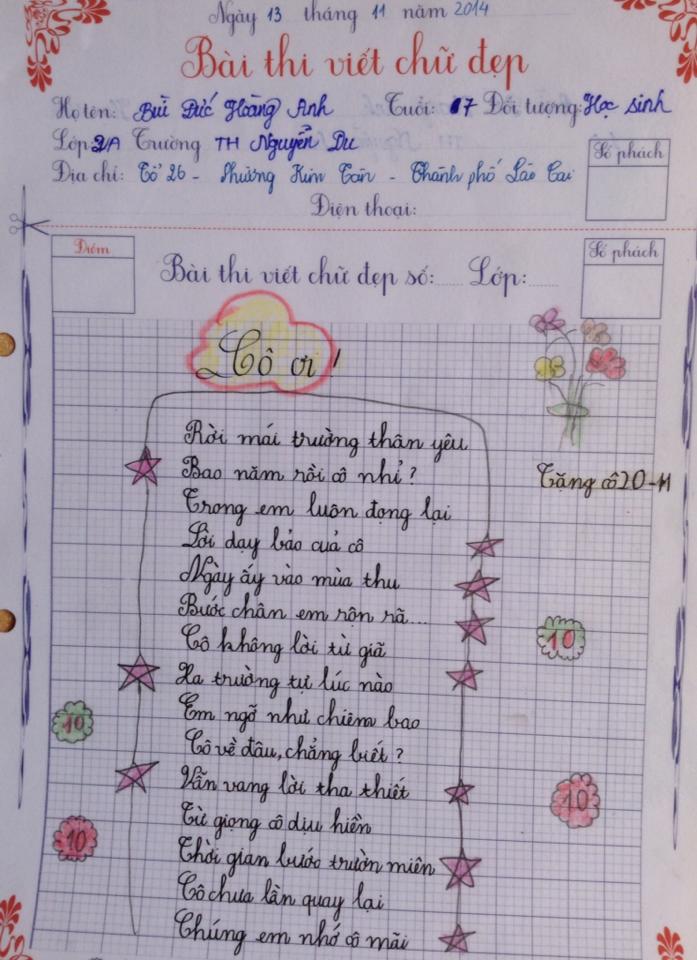 Ngày 13 tháng 11 năm 2014
Bài thi viết chữ đẹp
Họ tên: Bùi Đức Hoàng Anh Tuổi: 07 Đối tượng: Học sinh
Lớp 2A Trường TH Nguyễn Du
Địa chỉ: Tổ 26 - Phường Kim Tân - Thành phố Lào Cai
Số phách
Điện thoại:
Điểm
Bài thi viết chữ đẹp số: Lớp:
Số phách
Cô ơi!
Rời mái trường thân yêu
Bao năm rồi cô nhỉ?
Tặng cô 20-11
Trong em luôn đọng lại
Lời dạy bảo của cô
Ngày ấy vào mùa thu
Bước chân em rộn rã...
Cô không lời từ giã
10
Xa trường tự lúc nào
Em ngỡ như chiêm bao
10
Cô về đâu, chẳng biết?
Vẫn vang lời tha thiết
10
Từ giọng cô dịu hiền
10
Thời gian bước trườn miên
Cô chưa lần quay lại
Chúng em nhớ cô mãi